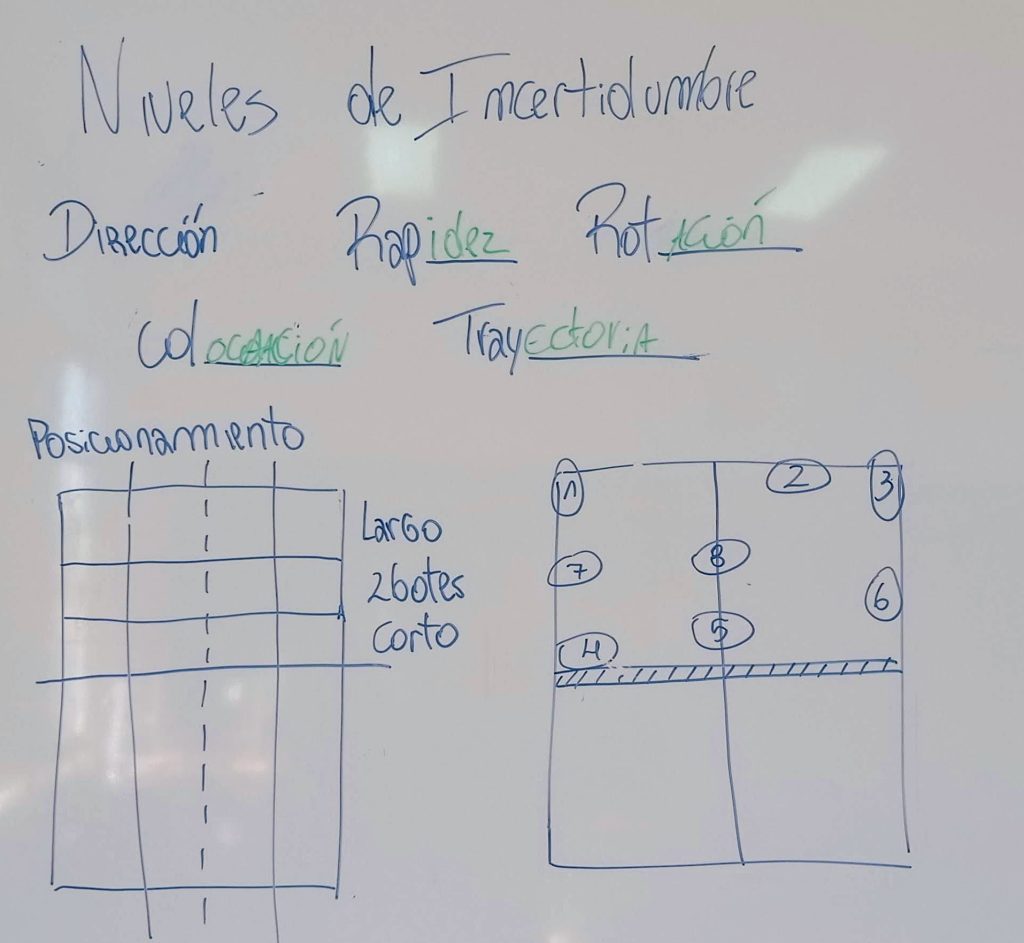 Niveles de Incertidumbre
Dirección Rapidez Rotación
Colocación Trayectoria
Posicionamiento
Largo
2botes
Corto
1 2 3
7 8 6
4 5